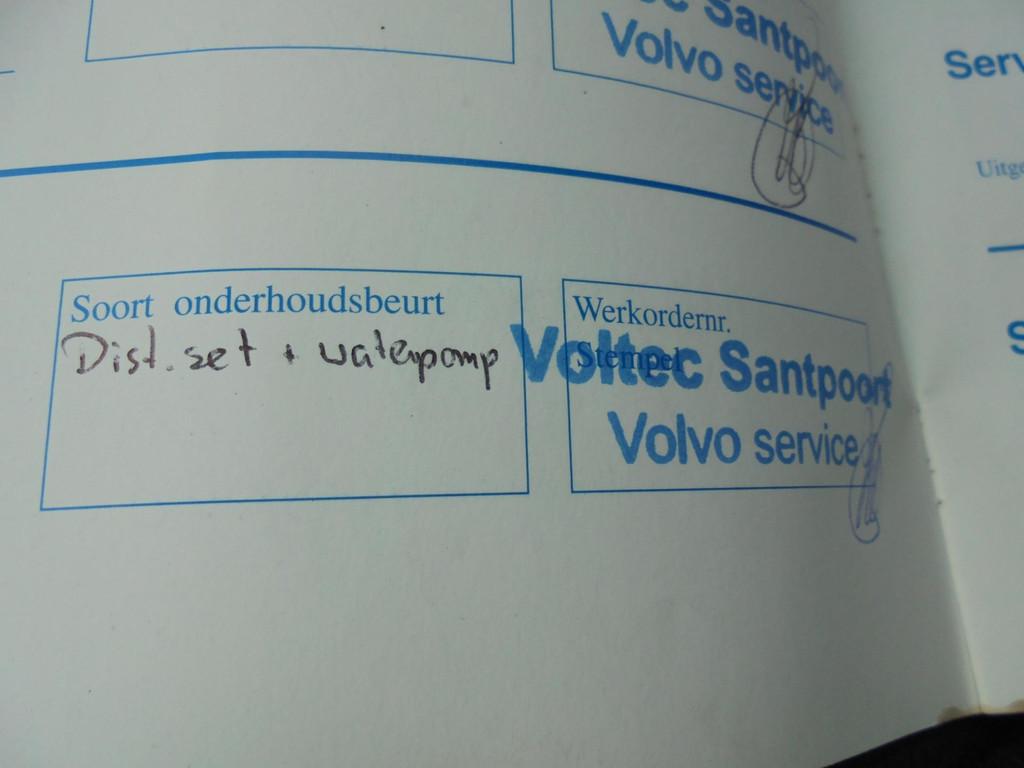 Santpoort
Volvo service
Soort onderhoudsbeurt
Dist. set + waterpomp
Werkordernr.
Stempel
Voltec Santpoort
Volvo service